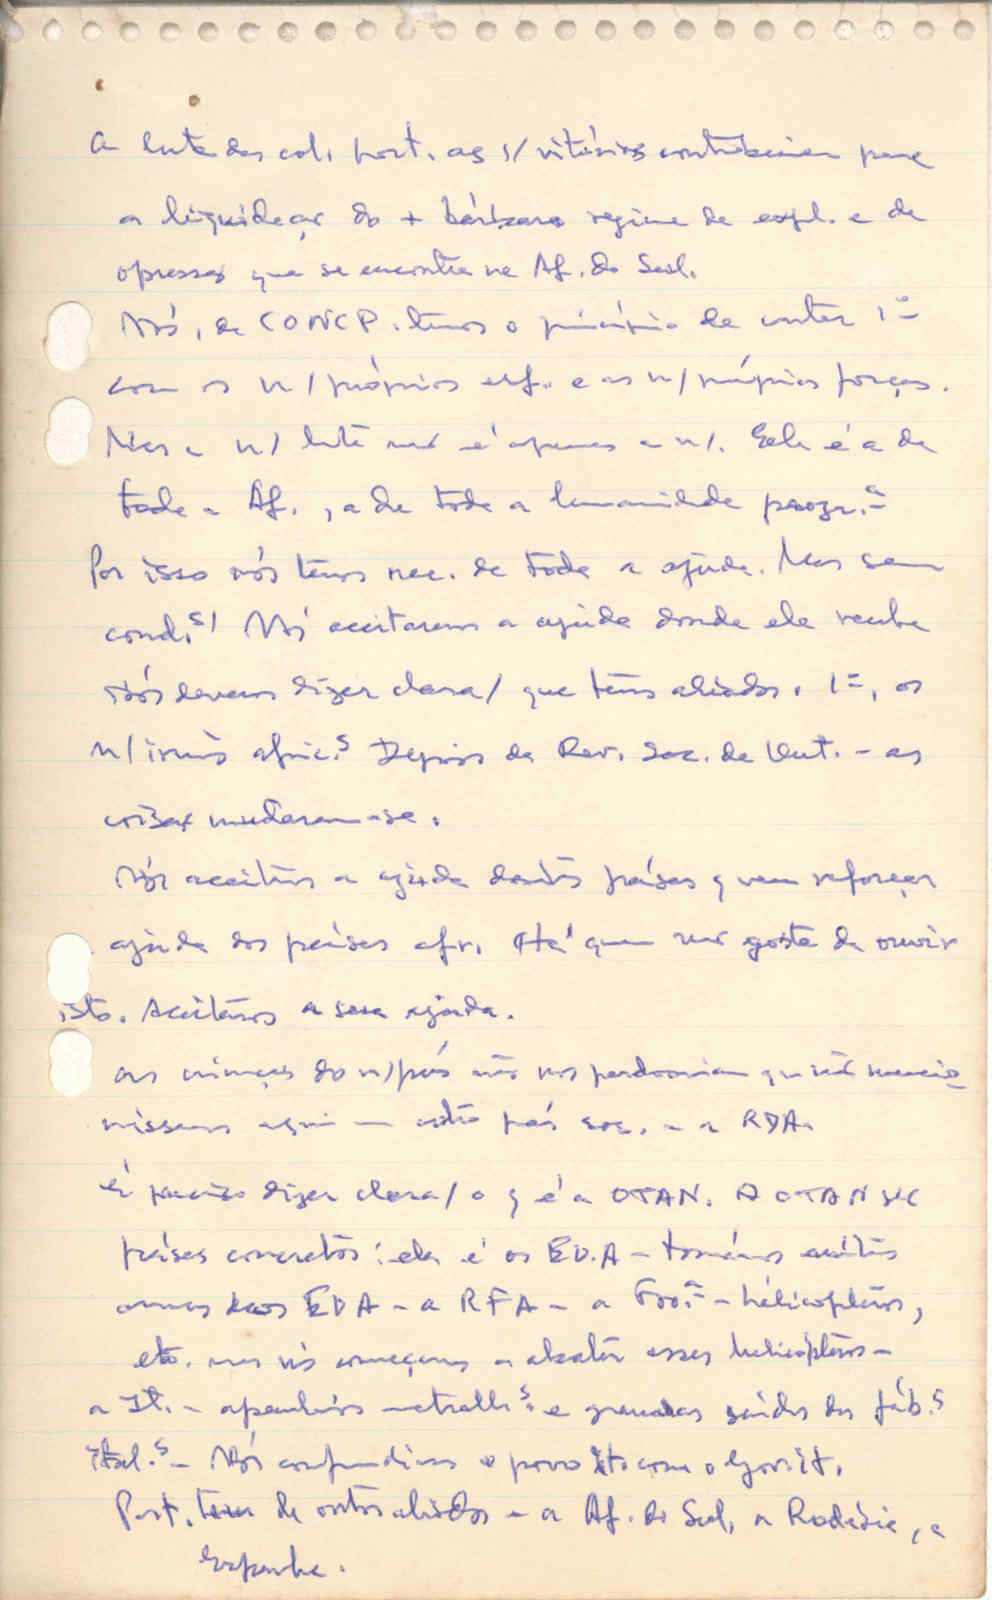 A luta das col. port. as s/ vitórias contribuirão para
a liquidação do + bárbaro regime de expl. e de
opressão que se encontra na Af. do Sul.
Nós, da CONCP. temos o princípio de contar 1º
com os n/ próprios esf. e as n/ próprias forças.
Mas a n/ luta não é apenas a n/. Ela é a de
toda a Af., a de toda a humanidade progr.ª
Por isso nós temos nec. de toda a ajuda. Mas sem
cond.s! Nós aceitaremos a ajuda donde ela venha
Nós devemos dizer clara/ que temos aliados. 1º, os
n/ irmãos afric.s Depois da Rev. Soc. de Out. - as
coisas mudaram-se.
Nós aceitamos a ajuda destes países q vem reforçar
ajuda dos países afr. Há quem não gosta de ouvir
isto. Aceitamos a sua ajuda.
As crianças do n/ país não nos perdoariam que não mencio
nássemos aqui outro país soc. - a RDA.
É preciso dizer clara/ o q é a OTAN. A OTAN são
países concretos: ela é os EUA - tomámos muitas
armas dos EUA - a RFA - a Frª - hélicopteros,
etc. mas nós começamos a abater esses helicópteros -
a It. - apanhámos metralh.s e granadas saídas das fáb.s
ital.s - Nós confundimos o povo it. com o Gov. it.
Port. tem de outros aliados - a Af. do Sul, a Rodésia, a
Espanha.